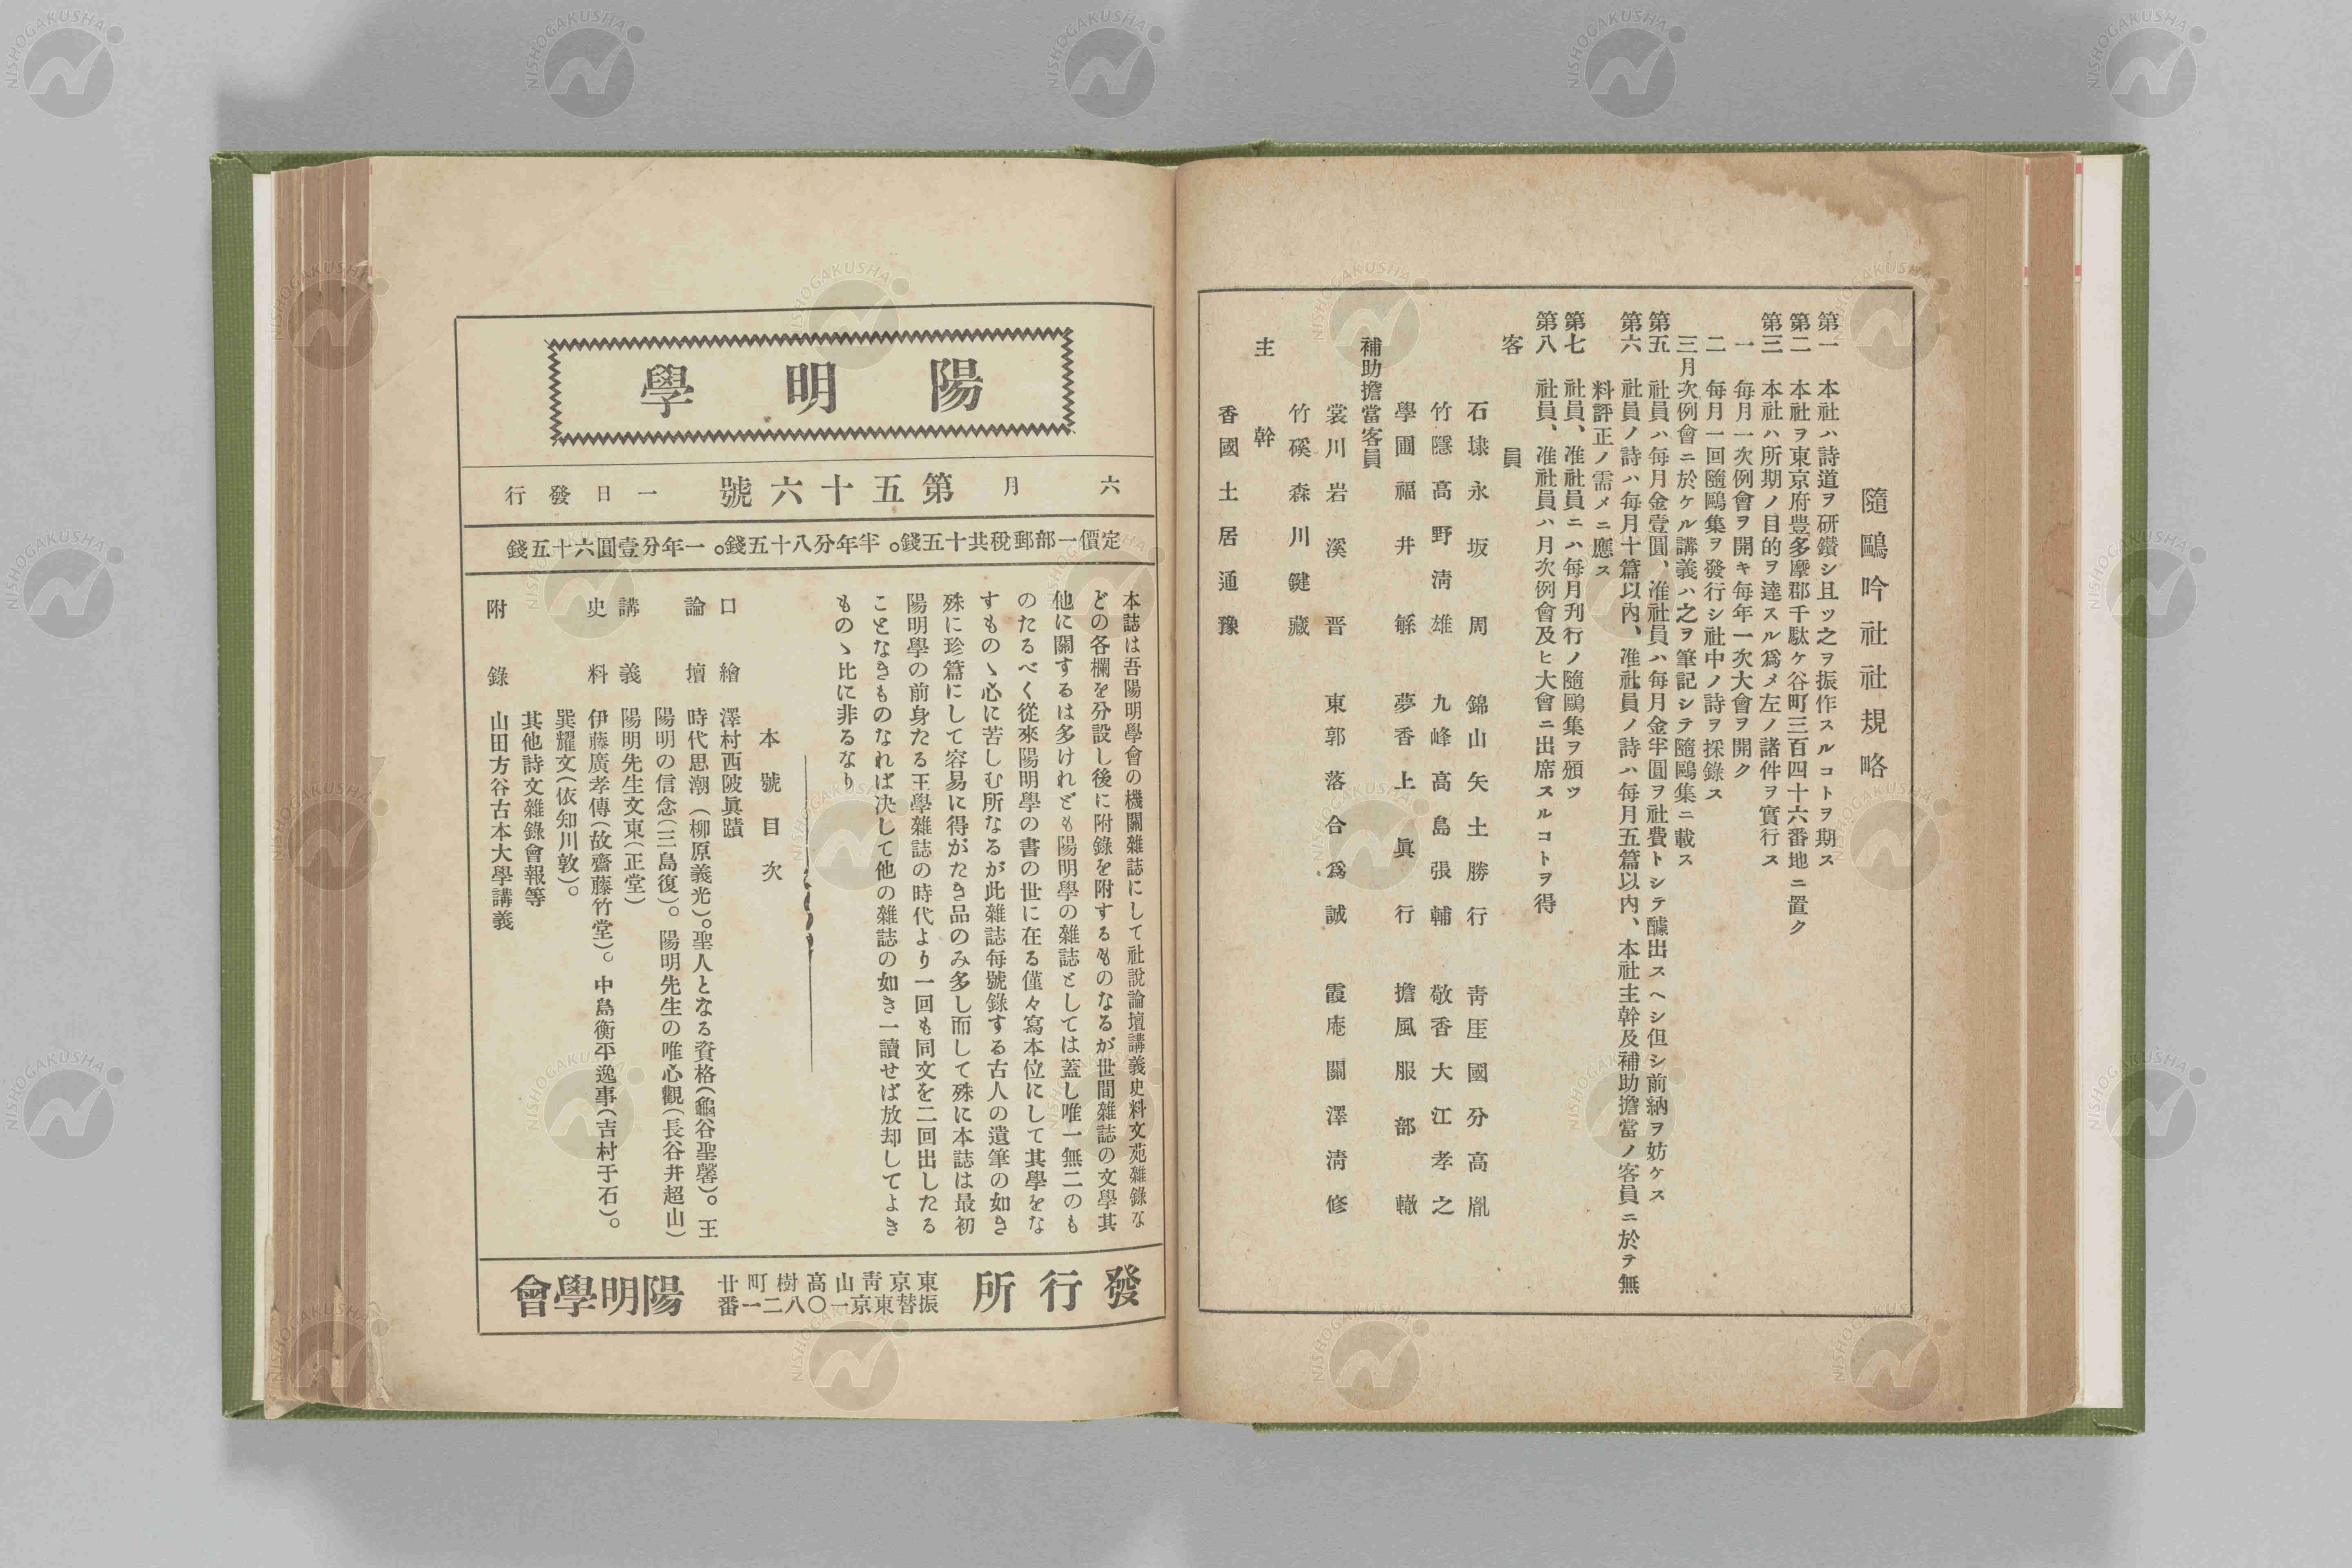 隨鷗吟社社規略
第一 本社ハ詩道ヲ研鑽シ且ツ之ヲ振作スルコトヲ期ス
第二 本社ヲ東京府豊多摩郡千駄ケ谷町三百四十六番地ニ置ク
第三 本社ハ所期ノ目的ヲ達スル爲メ左ノ諸件ヲ實行ス
一 毎月一次例會ヲ開キ毎年一次大會ヲ開ク
二 毎月一回隨鷗集ヲ發行シ社中ノ詩ヲ採錄ス
三 月次例會ニ於ケル講義ハ之ヲ筆記シテ隨鷗集ニ載ス
第五 社員ハ毎月金壹圓、准社員ハ毎月金半圓ヲ社費トシテ醵出スヘシ但シ前納ヲ妨ケス
第六 社員ノ詩ハ毎月十篇以內、准社員ノ詩ハ毎月五篇以內、本社主幹及補助擔當ノ客員ニ於テ無
料評正ノ需メニ應ス
第七 社員、准社員ニハ毎月刊行ノ隨鷗集ヲ頒ツ
第八 社員、准社員ハ月次例會及ヒ大會ニ出席スルコトヲ得
客員
石埭永坂周 錦山矢土勝行 靑厓國分高胤
竹隱高野淸雄 九峰高島張輔 敬香大江孝之
學圃福井繇 夢香上眞行 擔風服部轍
補助擔當客員
裳川岩溪晋 東郭落合爲誠 霞庵關澤淸修
竹磎森川鍵藏
主幹
香國土居通豫
陽明學
六月 第五十六號 一日發行
定價一部郵稅共十五錢。半年分八十五錢。一年分壹圓六十五錢
本誌は吾陽明學會の機關雜誌にして社說論壇講義史料文苑雜錄な
どの各欄を分設し後に附錄を附するものなるが世間雜誌の文學其
他に關するは多けれども陽明學の雜誌としては蓋し唯一無二のも
のたるべく從來陽明學の書の世に在る僅々寫本位にして其學をな
すものヽ心に苦しむ所なるが此雜誌毎號錄する古人の遺筆の如き
殊に珍篇にして容易に得がたき品のみ多し而して殊に本誌は最初
陽明學の前身たる王學雜誌の時代より一回も同文を二回出したる
ことなきものなれば決して他の雜誌の如き一讀せば放却してよき
ものヽ比に非るなり
本號目次
口繪 澤村西陂眞蹟
論壇 時代思潮(柳原義光)。聖人となる資格(龜谷聖馨)。王
陽明の信念(三島復)。陽明先生の唯心觀(長谷井超山)
講義 陽明先生文東(正堂)
史料 伊藤廣孝傳(故齋藤竹堂)。中島衡平逸事(吉村于石)。
巽耀文(依知川敦)。
其他詩文雜錄會報等
附錄 山田方谷古本大學講義
發行所
東京靑山高樹町廿
振替東京一〇八二一番
陽明學會
NISHOGAKUSHA